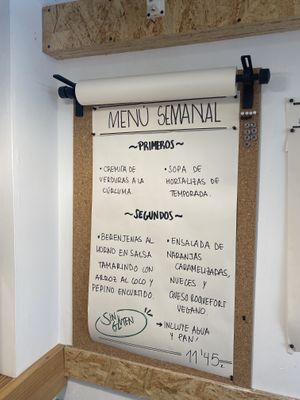 MENÚ SEMANAL
~PRIMEROS~
• CREMITA DE
VERDURAS A LA
CÚRCUMA.
• SOPA DE
HORTALIZAS DE
TEMPORADA.
~SEGUNDOS~
• BERENJENAS AL
HORNO EN SALSA
TAMARINDO CON
ARROZ AL COCO Y
PEPINO ENCURTIDO.
• ENSALADA DE
NARANJAS
CARAMELIZADAS,
NUECES Y
QUESO ROQUEFORT
VEGANO
SIN GLUTEN
→ INCLUYE AGUA
Y PAN
11'45€